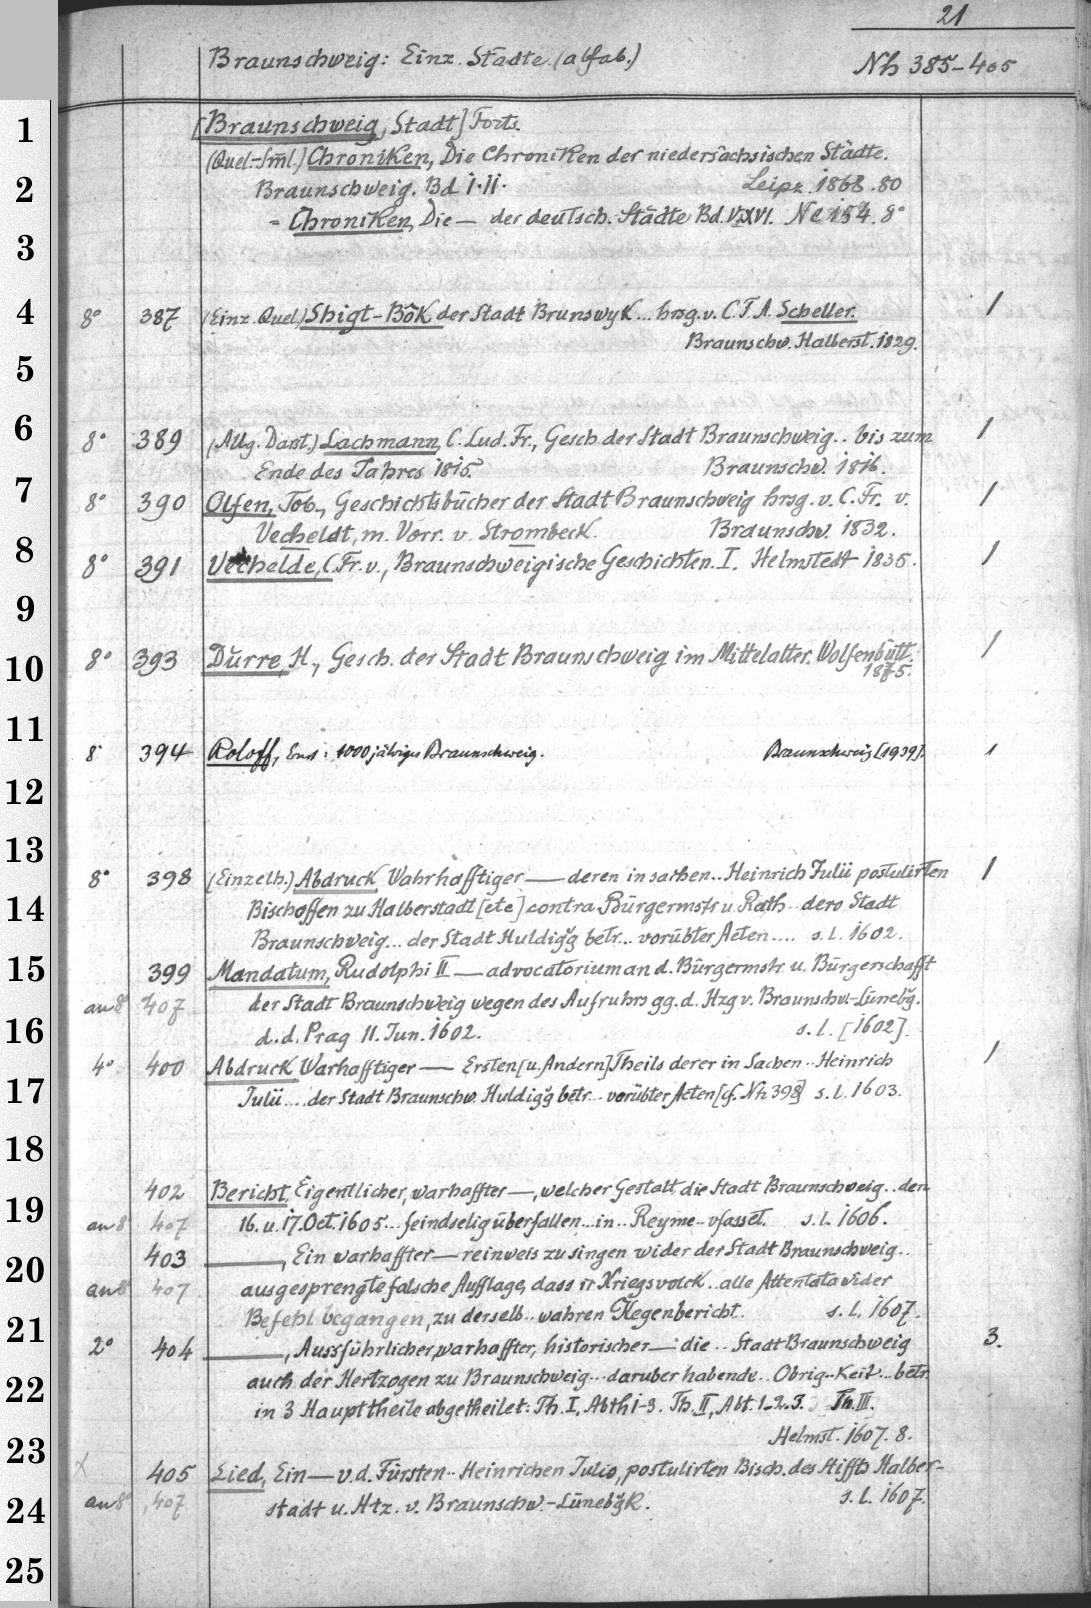 21
Braunschweig: Einz. Städte (alfab.)
Nh 385-405
[Braunschweig, Stadt] Forts.
(Quel.-Sml.) Chroniken, Die Chroniken der niedersächsischen Städte.
Braunschweig. Bd I.II. Leipz. 1868.80
= Chroniken, Die — der deutsch. Städte Bd. VI.XVI. Nc 154. 8°
8° 387 (Einz. Quel.) Shigt-Bôk der Stadt Brunswyk... hrsg. v. C.F.A. Scheller. 1
Braunschw. Halberst. 1829.
8° 389 (Allg. Darst.) Lachmann, C. Lud. Fr., Gesch. der Stadt Braunschweig.. bis zum 1
Ende des Jahres 1815. Braunschw. 1816.
8° 390 Olfen, Tob., Geschichtsbücher der Stadt Braunschweig hrsg. v. C. Fr. v. 1
Vecheldt, m. Vorr. v. Strombeck. Braunschw. 1832.
8° 391 Vechelde, C. Fr. v., Braunschweigische Geschichten. I. Helmstedt 1835. 1
8° 393 Dürre, H., Gesch. der Stadt Braunschweig im Mittelalter. Wolfenbütt. 1
1875.
8° 394 Roloff, Ernst: 1000jähriges Braunschweig. Braunschweig [1939]. 1
8° 398 (Einzelh.) Abdruck Wahrhafftiger — deren in sachen.. Heinrich Julii postulirten 1
Bischoffen zu Halberstadt [etc] contra Bürgermstr u. Rath.. dero Stadt
Braunschweig... der Stadt Huldig'g betr... vorübter Acten.... s.l. 1602.
399 Mandatum, Rudolphi II — advocatorium an d. Bürgermstr. u. Bürgerschafft
an 8° 407 der Stadt Braunschweig wegen des Aufruhrs gg. d. Hzg v. Braunschw.-Lünebg.
d.d. Prag 11. Jun. 1602. s.l. [1602].
4° 400 Abdruck Warhafftiger — Ersten [u. Andern] Theils derer in Sachen.. Heinrich 1
Julii.... der Stadt Braunschw. Huldig'g betr... vorübter Acten [cf. Nh 398] s.l. 1603.
402 Bericht, Eigentlicher, warhaffter —, welcher Gestalt die Stadt Braunschweig.. den
an 8° 407 16. u. 17. Oct. 1605... feindselig überfallen... in.. Reyme vfasset. s.l. 1606.
403 —, Ein warhaffter — reinweis zu singen wider der Stadt Braunschweig..
an 8° 407 ausgesprengte falsche Aufflage, dass ir Kriegsvolck.. alle Attentata wider
Befehl begangen, zu derselb.. wahren Gegenbericht. s.l. 1607.
2° 404 —, Aussführlicher, warhaffter, historischer — die.. Stadt Braunschweig 3.
auch der Hertzogen zu Braunschweig... daruber habende.. Obrig-Keit... betr.
in 3 Haupttheile abgetheilet: Th. I, Abth 1-3. Th. II, Abt. 1-2.3. Th. III.
Helmst. 1607. 8.
x 405 Lied, Ein — v. d. Fürsten.. Heinrichen Julio, postulirten Bisch. des Stiffts Halber-
an 8° 407 stadt u. Htz. v. Braunschw.-Lünebg R. s.l. 1607.
1
2
3
4
5
6
7
8
9
10
11
12
13
14
15
16
17
18
19
20
21
22
23
24
25